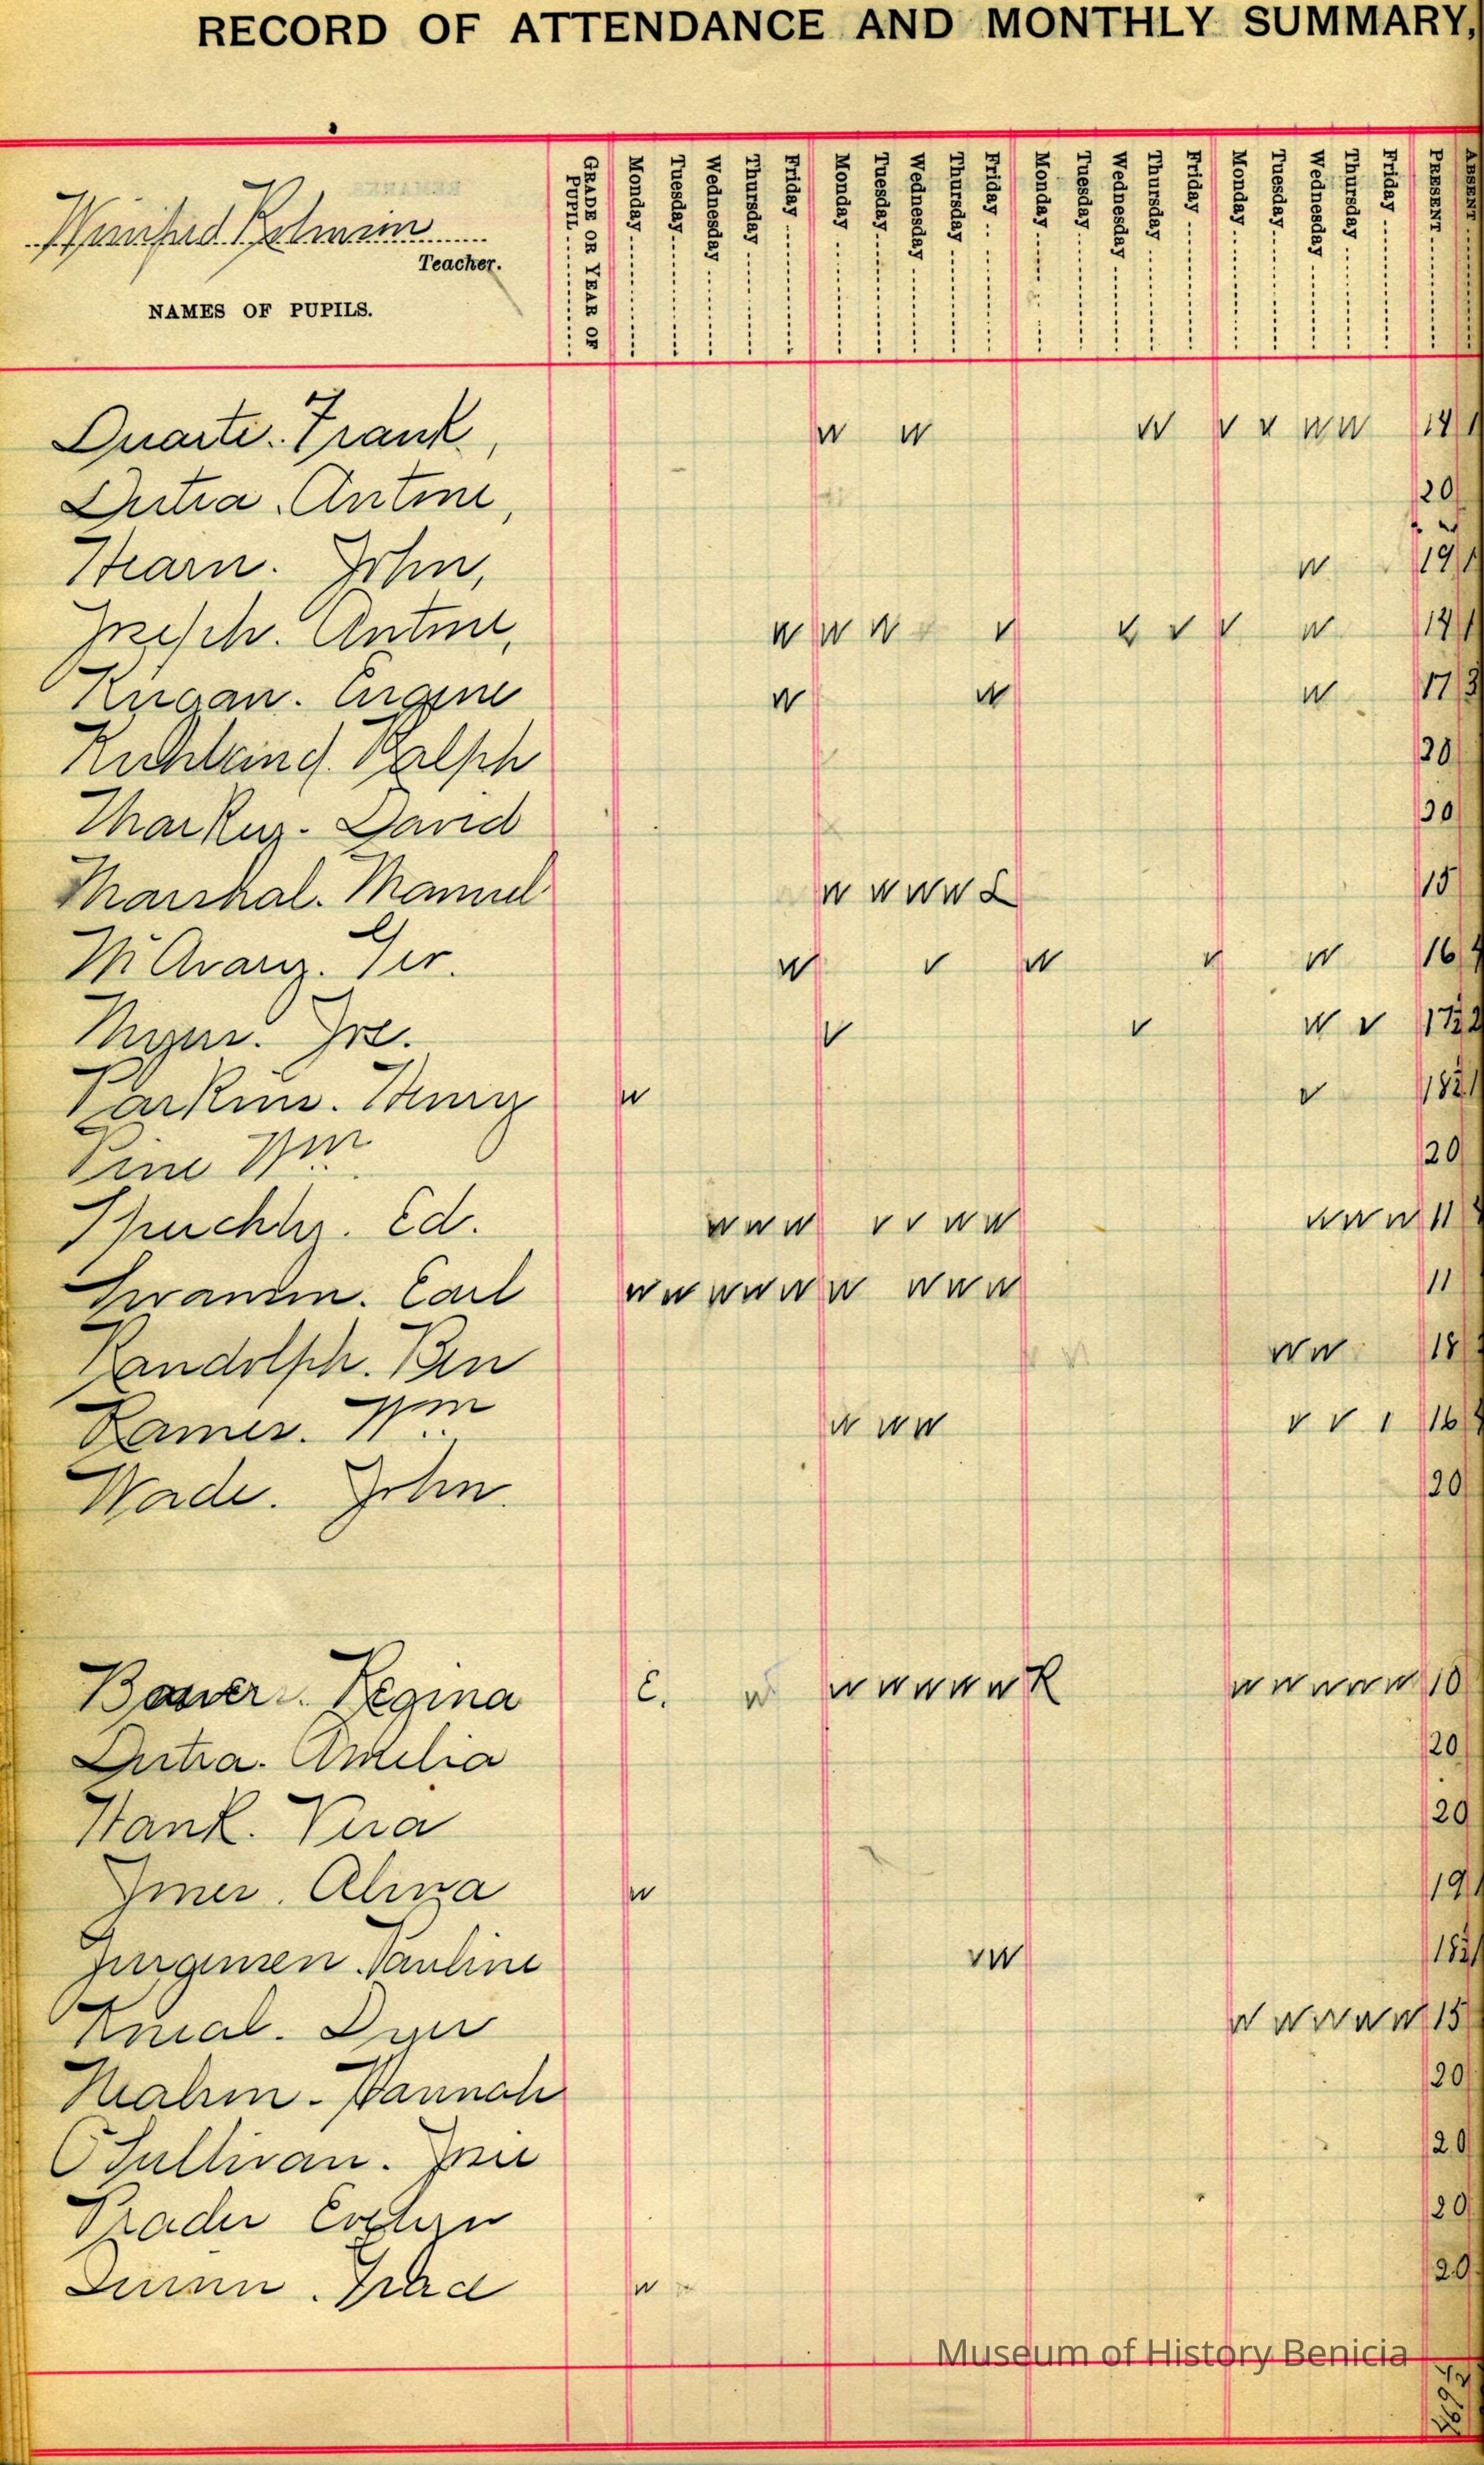 RECORD OF ATTENDANCE AND MONTHLY SUMMARY,
Winifred
Teacher.
NAMES OF PUPILS.
GRADE OR YEAR OF PUPIL
Monday Tuesday Wednesday Thursday Friday Monday Tuesday Wednesday Thursday Friday Monday Tuesday Wednesday Thursday Friday Monday Tuesday Wednesday Thursday Friday PRESENT ABSENT
Duarte. Frank, W W W V V W W 14 1
Dutra. Antone, 20
Hearn. John, W 19 1
Joseph. Antone, W W W V V V V W 14
Eugene W W W 17 3
Ralph 20
David 20
Marshal. Manuel W W W W L 15
Ger. W V W V W 16 4
Joe. V V W V 17½ 2
Henry W V 18½ 1
Pine Wm 20
Ed. W W W V V W W W W W 11
Earl W W W W W W W W W 11
Randolph. Ben W W 18
Ramer. Wm W W W V V 16 4
Wade. John. 20
Bower. Regina E. W W W W W W R W W W W W 10
Dutra. Amelia 20
Hank. Vera 20
Alma W 19 1
Jurgensen Pauline V W 18½ 1
W W W W W 15
Hannah 20
O'Sullivan. Josie 20
Prader Evelyn 20
W 20
Museum of History Benicia